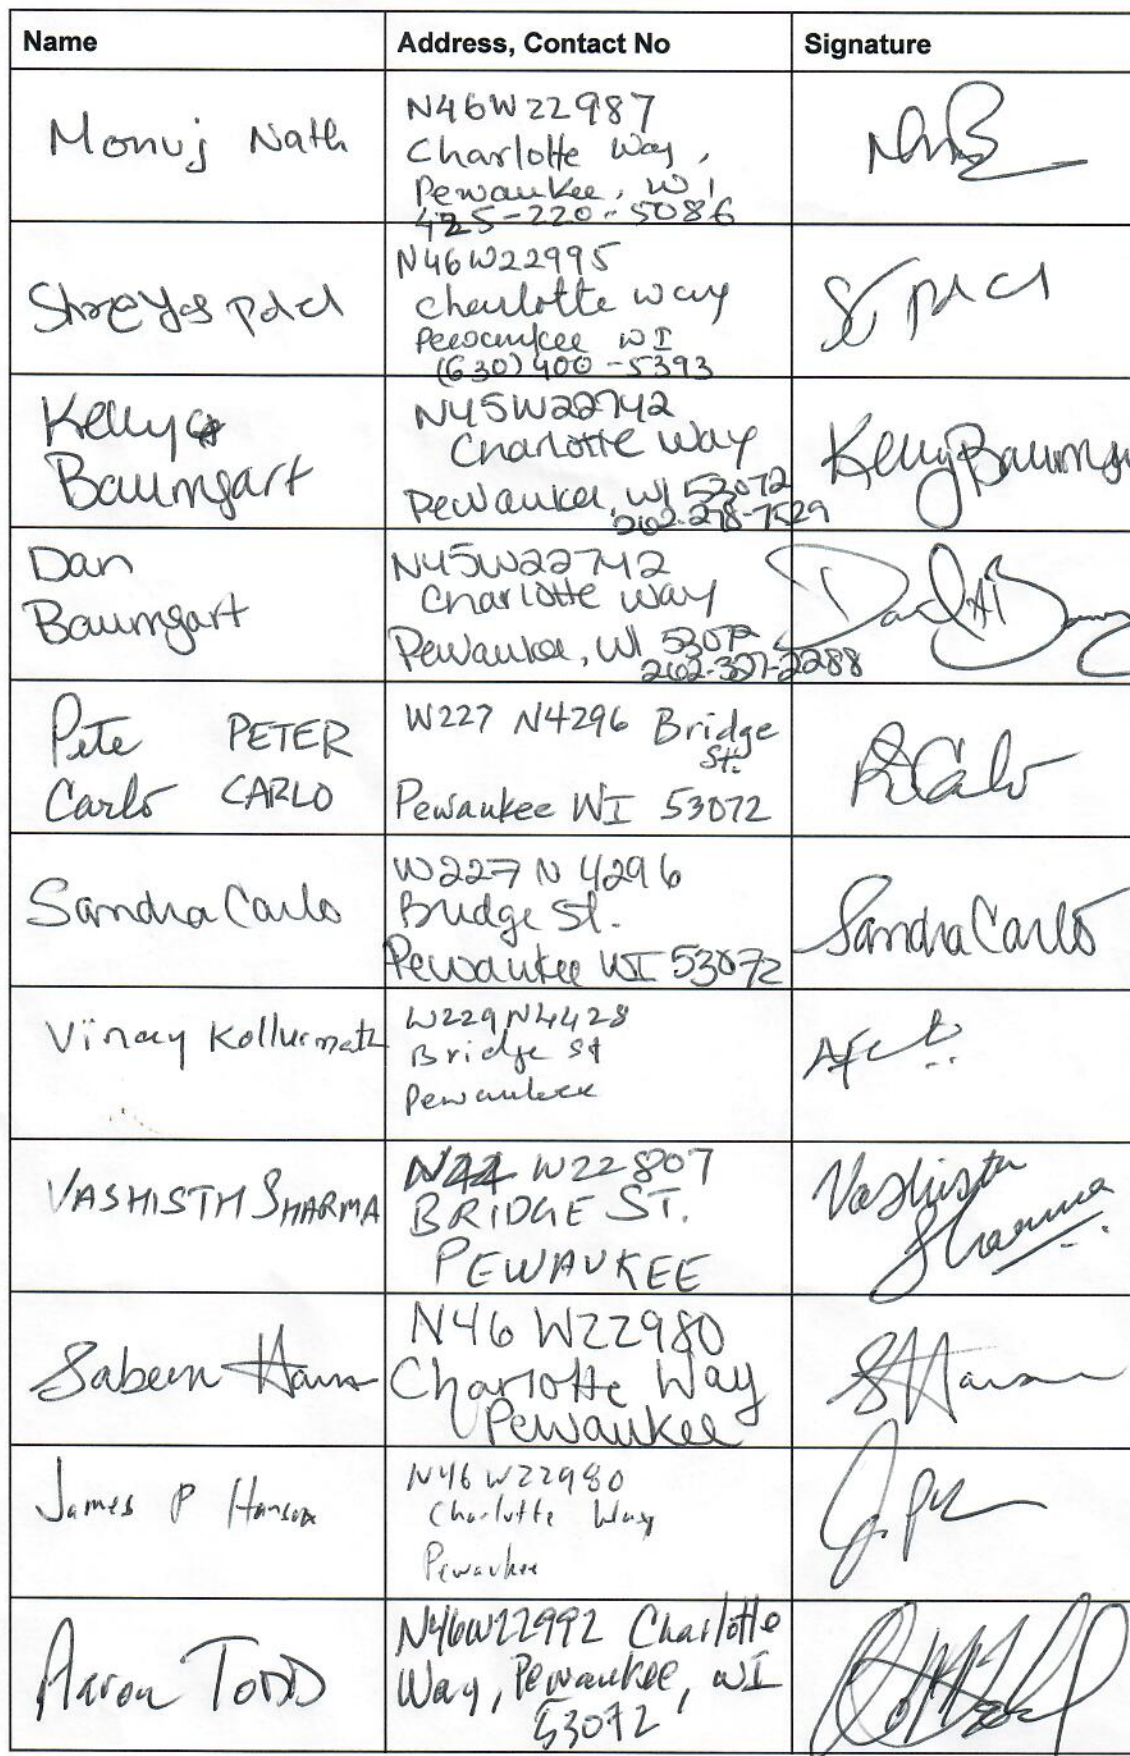 Name Address, Contact No Signature
Monuj Nath
N46W22987
Charlotte Way,
Pewaukee, WI
425-220-5086
Shreyas
N46W22995
Charlotte Way
Pewaukee WI
(630) 400-5393
Kelly
Baumgart
N45W22742
Charlotte Way
Pewaukee, WI 53072
262-278-7529
Kelly Baumg
Dan
Baumgart
N45W22742
Charlotte Way
Pewaukee, WI 53072
262-327-2288
Pete PETER
Carlo CARLO
W227 N4296 Bridge
St.
Pewaukee WI 53072
P Carlo
Sandra Carlo
W227 N 4296
Bridge St.
Pewaukee WI 53072
Sandra Carlo
Vinay Kollurmath
W229N4428
Bridge St
Pewaukee
VASHISTH SHARMA
N44 W22807
BRIDGE ST.
PEWAUKEE
Vashisth
Sharma
Sabeen
N46 W22980
Charlotte Way
Pewaukee
James P Hanson
N46 W22980
Charlotte Way
Pewaukee
Aaron TODD
N46W22992 Charlotte
Way, Pewaukee, WI
53072